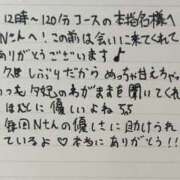 12時〜120分コースの本指名様へ
Nさんへ！この前は会いに来てくれて
ありがとうございます♪
久しぶりだから めっちゃ甘えちゃ
いつも夕妃のわがままを聞いてくれ
ほんとに優しいよね
毎回Nさんの優しさに助けられ
ているよ♡本当にありがとう!!